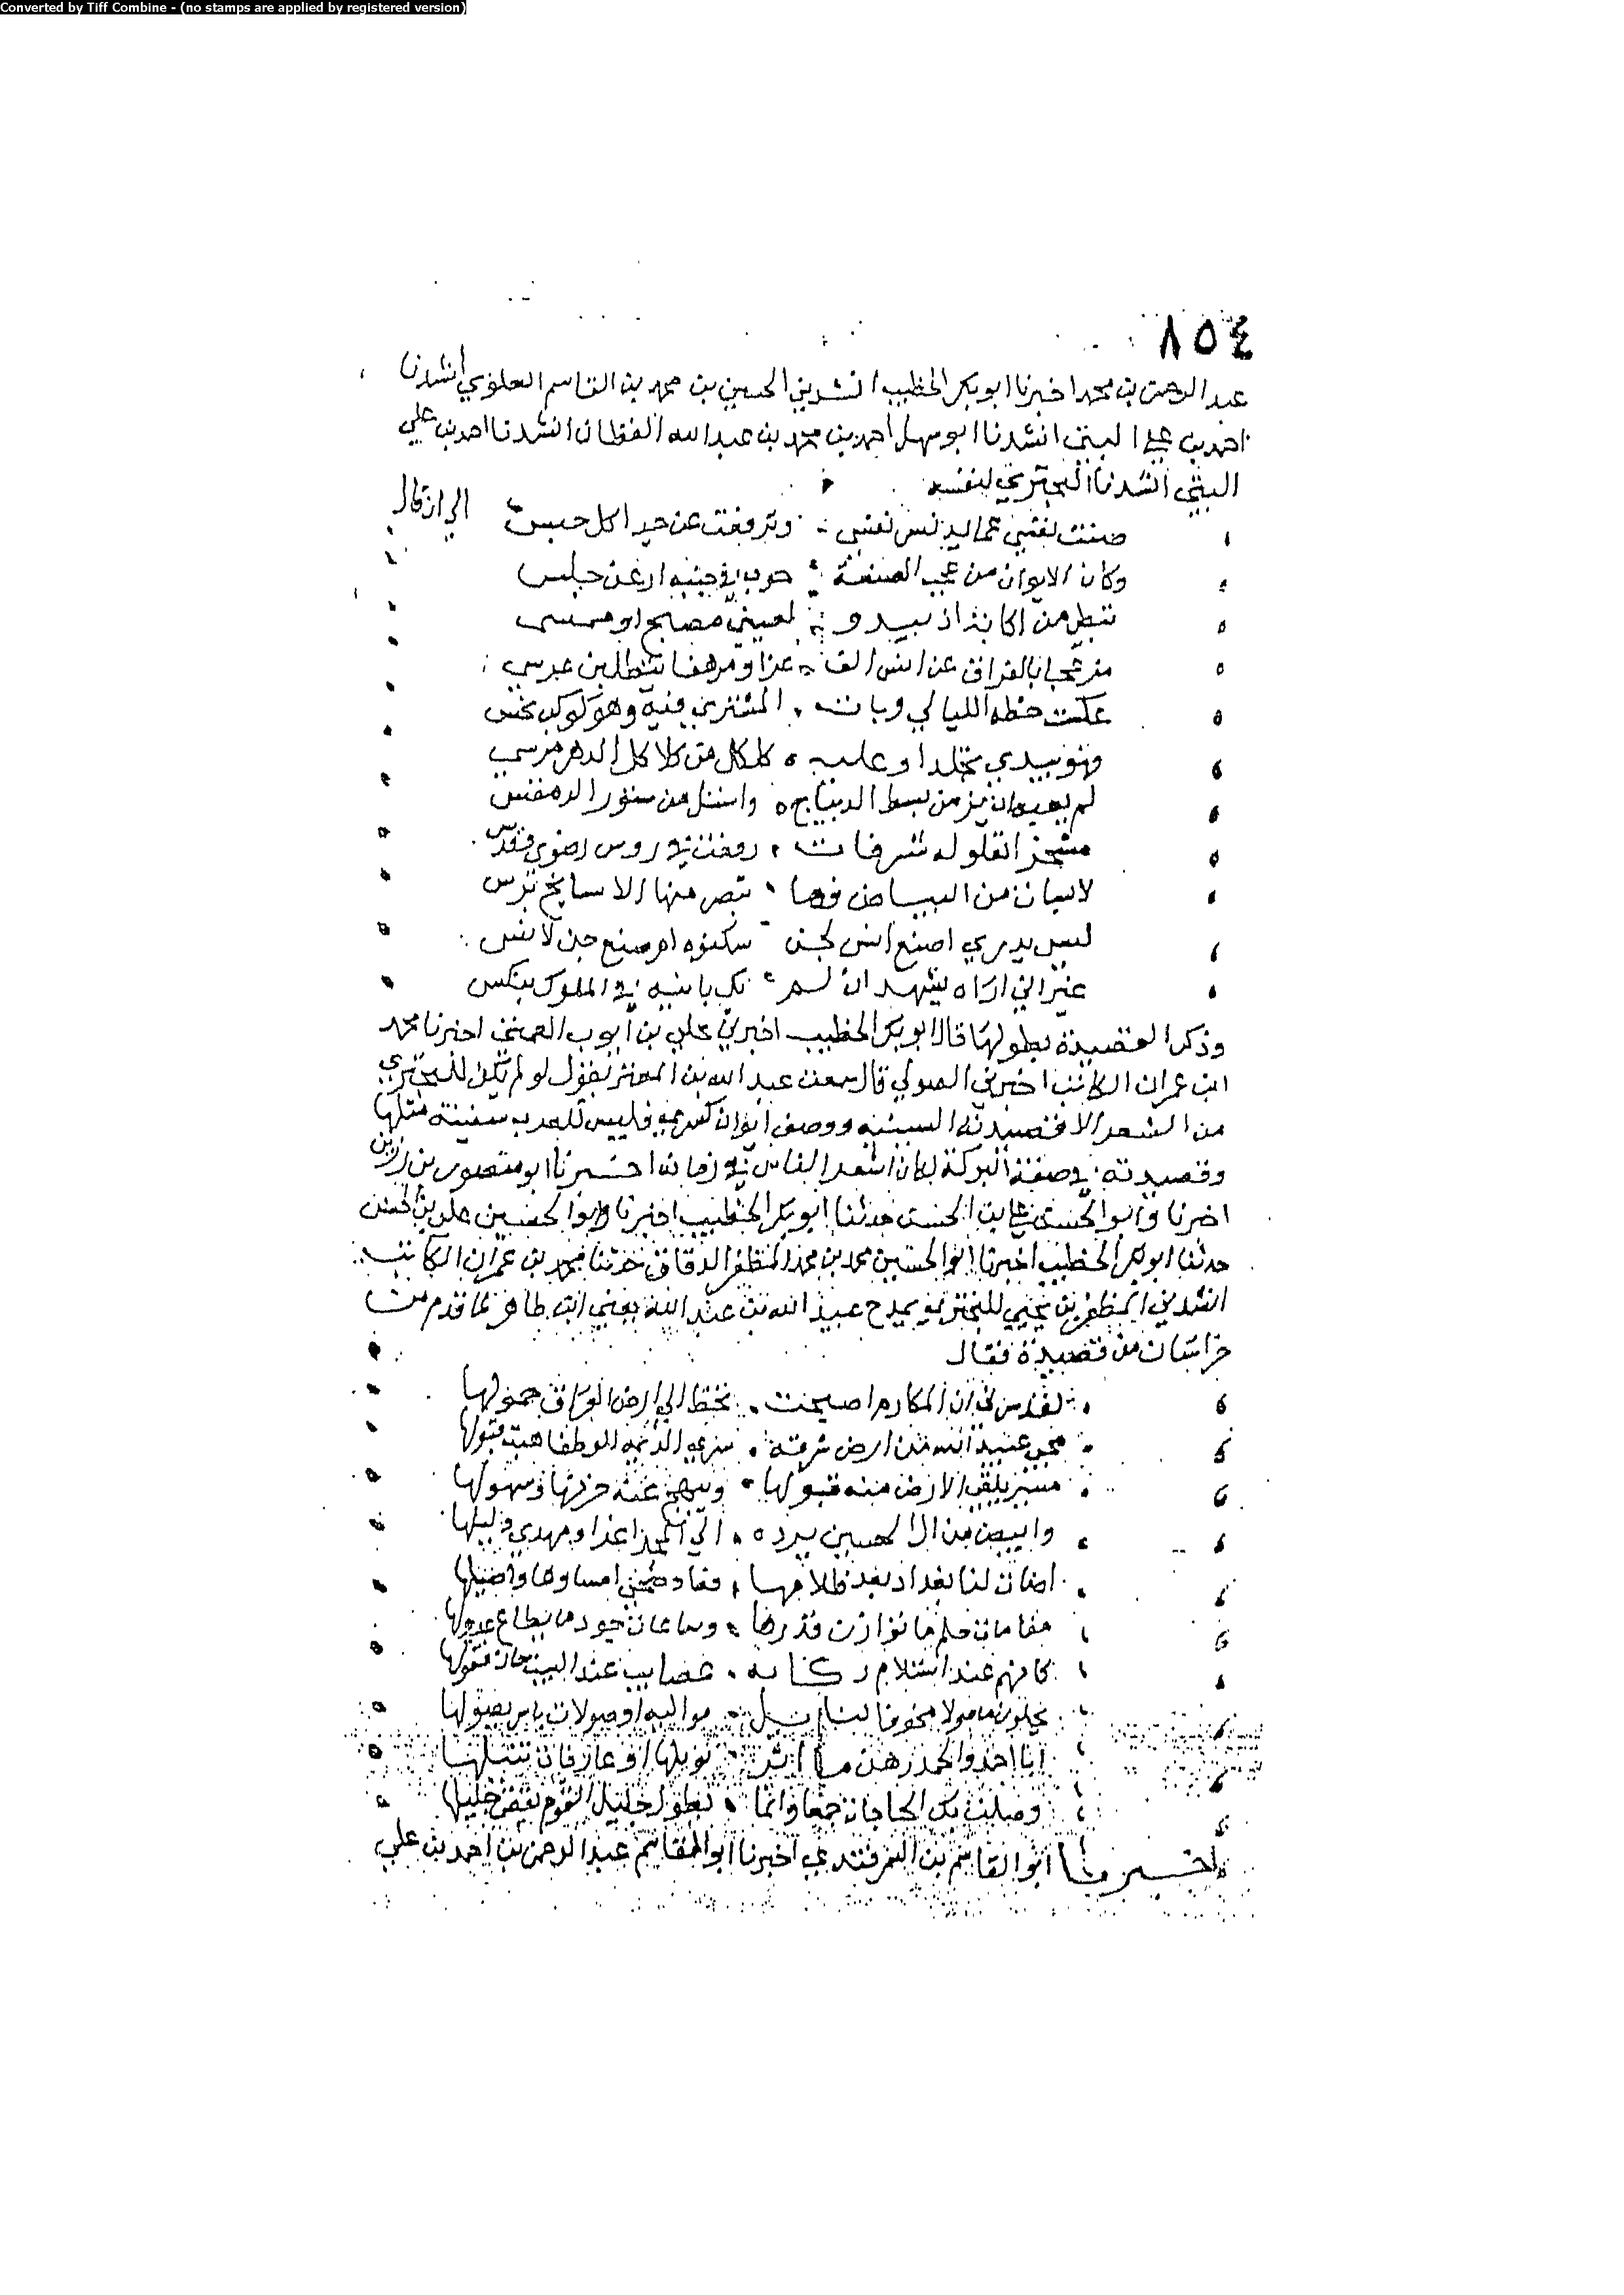 Converted by Tiff Combine - (no stamps are applied by registered version)
٨٥٤
عبد الرحمن بن محمد اخبرنا ابو بكر الخطيب انشدني الحسين بن محمد بن القاسم العلوي انشدنا
احمد بن علي البتي انشدنا ابو سهل احمد بن محمد بن عبد الله القطان انشدنا احمد بن علي
البتي انشدنا البحتري لنفسه
صنت نفسي عما يدنس نفسي وترفعت عن جدا كل جبس الي ان قال
وكان الايوان من عجب الصنعة جوب في جنبه ارعن جلس
من الكابة اذ يبدو لعيني مصبح او ممسي
مزعجا بالفراق عن انس الف عزا ومرهقا بتطليق عرس
عكست حظه الليالي وبات المشتري فيه وهو كوكب نحس
فهو يبدي تجلدا وعليه كلكل من كلاكل الدهر مرسي
لم يعبه ان بز من بسط الديباج واستل من ستور الدمقس
مشمخر تعلو له شرفات رفعت في روس رضوي وقدس
لابسات من البياض فما تبصر منها الا برس
ليس يدري اصنع انس لجن سكنوه ام صنع جن لانس
غير اني اراه يشهد ان لم يك بانيه في الملوك بنكس
وذكر القصيدة بطولها قال ابو بكر الخطيب اخبرني علي بن ايوب القمي اخبرنا محمد
ابن عمران الكاتب اخبرني الصولي قال سمعت عبد الله بن المعتز يقول لو لم يكن للبحتري
من الشعر الا قصيدته السينية ووصف ايوان كسري فليس للعرب سينية مثلها
وقصيدته في صفة البركة لكان اشعر الناس في زمانه اخبرنا ابو منصور بن زريق
اخبرنا وابو الحسن علي بن الحسن حدثنا ابو بكر الخطيب اخبرنا وابو الحسين علي بن الحسن
حدثنا ابو بكر الخطيب اخبرنا ابو الحسين محمد بن محمد المظفر الدقاق حدثنا محمد بن عمران الكاتب
انشدني المظفر بن يحيي للبحتري يمدح عبيد الله بن عبد الله يعني ابن طاهر لما قدم من
خراسان من قصيدة فقال
لقد سرني ان المكارم اصبحت تحط الي ارض العراق حمولها
مجي عبيد الله من ارض شرقه سري الديمة الوطفا هبت قبولها
مسير يلقي الارض منه قبولها ويبهج عنه حزنها وسهولها
وابيض من ال الحسين يرده الي المجد
اضات لنا بغداد بعد ظلامها فعاد ضحي امساوها واصيلها
مقامات حلم ما توازن قدرها وساعات جود ما يطاع عذولها
كانهم عند استلام ركابه عصايب عند البيت حان قفولها
يحلون مامولا مخوفا لنايل يواليه او صولات باس يصولها
ابا احمد والحمد رهن ماثر تويلها او عارفات تنيلها
وصلت بك الحاجات جمعا وانما بطول جليل القوم يقضي جليلها
اخبرنا ابو القاسم بن السمرقندي اخبرنا ابو القاسم عبد الرحمن بن احمد بن علي